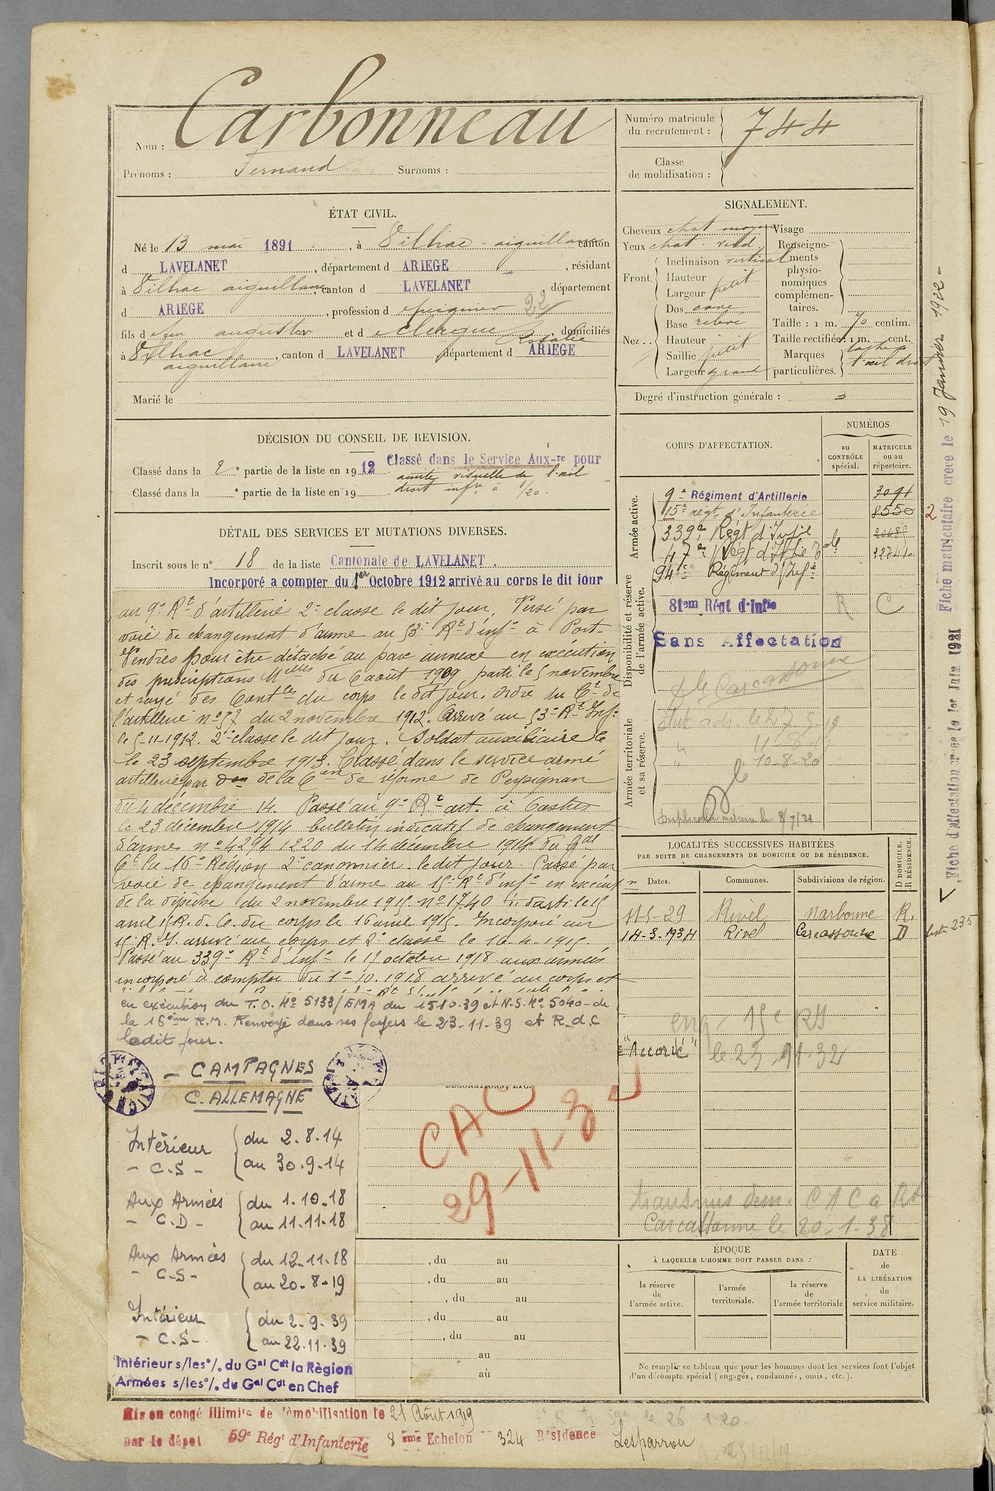 Nom : Carbonneau
Prénoms : Fernand Surnoms :
Numéro matricule
du recrutement : 744
Classe
de mobilisation :
ÉTAT CIVIL.
Né le 13 mai 1891, à Vilhac-aiguillane canton
d LAVELANET, département d ARIEGE, résidant
à Vilhac aiguillane, canton d LAVELANET département
d ARIEGE, profession d
fils d feu auguste et d Clergue Rosalie, domiciliés
à Vilhac aiguillane, canton d LAVELANET, département d ARIEGE
Marié le
SIGNALEMENT.
Cheveux chat moyen Visage
Yeux chat. verd
Front. Inclinaison vertical
Hauteur
Largeur petit
Nez.. Dos cave
Base relevé
Hauteur
Saillie petit
Largeur grand
Renseignements
physionomiques
complémentaires.
Taille : 1 m. 70 centim.
Taille rectifiée : 1 m. cent.
Marques
particulières.
Degré d'instruction générale : 3
DÉCISION DU CONSEIL DE REVISION.
Classé dans la 2e partie de la liste en 1912 Classé dans le Service Aux-re pour
acuité visuelle de l'œil
Classé dans la e partie de la liste en 19 droit infre à 1/20.
DÉTAIL DES SERVICES ET MUTATIONS DIVERSES.
Inscrit sous le n° 18 de la liste Cantonale de LAVELANET.
Incorporé a compter du 1er Octobre 1912 arrivé au corps le dit jour
au 9e Rt d'artillerie 2e classe le dit jour. Versé par
voie de changement d'arme au 53e Rt d'infie à Port-
Vendres pour être détaché au parc annexe en exécution
des prescriptions Mlles du 6 aout 1909 parti le 5 novembre
et rayé des Contles du corps le dit jour. Ordre du Gt de
l'artillerie n° 52 du 2 novembre 1912. Arrivé au 53e Rt Infie
le 5-11-1912. 2e classe le dit jour. Soldat auxiliaire le
le 23 septembre 1913. Classé dans le service armé
artillerie par don de la Con de réforme de Perpignan
du 4 décembre 14. Passé au 9e Rt art. à Castres
le 23 décembre 1914 bulletin indicatif de changement
d'arme n° 4294 1220 du 14 décembre 1914 du Gal
Ct la 16e Région 2e canonnier le dit jour. Passé par
voie de changement d'arme au 15e Rt d'infie en exécut
de la dépêche du 2 novembre 1915 n° 1740 parti le 15
avril R. d. C. du corps le 16 avril 1915. Incorporé au
15e R. I. arrivé au corps et 2e classe le 16-4-1915.
Passé au 339e Rt d'infie le 1er octobre 1918 aux armées
incorporé à compter du 1er-10-1918 arrivé au corps et
en exécution du T.O. N° 5133/EMA du 15.10.39 et N.S. N° 5040-de
la 16ème R.M. Renvoyé dans ses foyers le 23-11-39 et R.d.C
ledit jour.
- CAMPAGNES
C. ALLEMAGNE
Intérieur - C.S - du 2.8.14 au 30.9.14
Aux Armées - C.D - du 1.10.18 au 11.11.18
Aux Armées - C.S - du 12.11.18 au 20-8-19
Intérieur - C.S - du 2.9.39 au 22.11.39
Intérieur s/les °/. du Gal Cdt la Région
Armées s/les °/. du Gal Cdt en Chef
CORPS D'AFFECTATION.
NUMÉROS
au
CONTRÔLE
spécial.
MATRICULE
ou au
répertoire.
Armée active.
9e Régiment d'Artillerie 3091
15e régt d'Infanterie 8550
339e Régt d'Infie
47e Régt d'Infie
94e Régiment d'Infie
Disponibilité et réserve
de l'armée active.
81em Régt d'Infie R C
Sans Affectation
Armée territoriale
et sa réserve.
10-8-20
LOCALITÉS SUCCESSIVES HABITÉES
PAR SUITE DE CHANGEMENTS DE DOMICILE OU DE RÉSIDENCE.
Dates. Communes. Subdivisions de région. D DOMICILE. R RÉSIDENCE.
11-5-29 Rivel Narbonne R.
14-3-1934 Rivel Carcassonne D
"Accordé" le 23-11-32
CAC
29-11-32
transmis dem. CAC a
Carcassonne le 20-1-38
, du au
, du au
, du au
, du au
, du au
au
au
ÉPOQUE
À LAQUELLE L'HOMME DOIT PASSER DANS :
la réserve
de
l'armée active.
l'armée
territoriale.
la réserve
de
l'armée territoriale
DATE
de
LA LIBÉRATION
du
service militaire.
Ne remplir ce tableau que pour les hommes dont les services font l'objet
d'un décompte spécial (engagés, condamnés, omis, etc.).
Mis en congé illimité de démobilisation le 21 Août 1919
par le dépôt 59e Régt d'Infanterie 8ème Echelon 324 Résidence Lesparrou
Fiche matriculaire créée le 19 Janvier 1922-
Fiche d'affectation créée le 1er Juin 1921
2